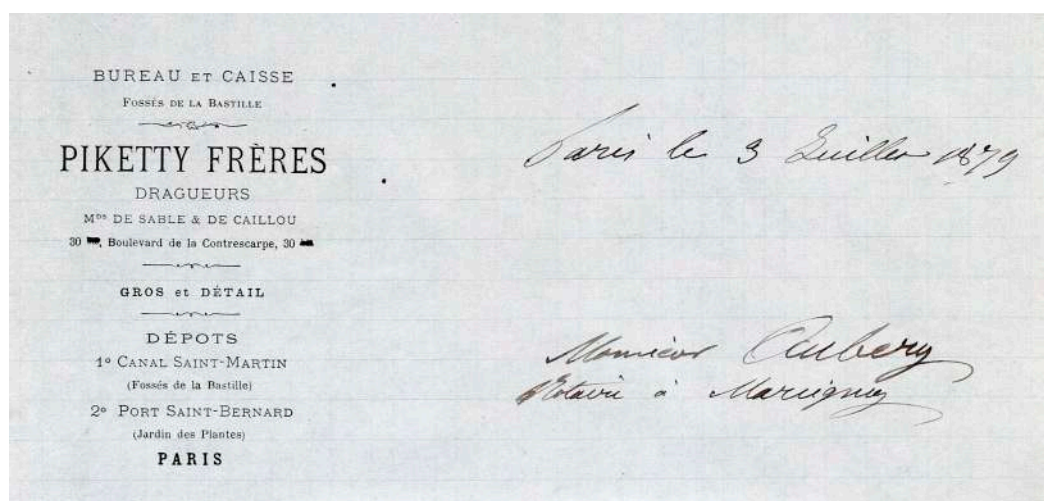 BUREAU ET CAISSE
FOSSÉS DE LA BASTILLE
PIKETTY FRÈRES
DRAGUEURS
Mds DE SABLE & DE CAILLOU
30, Boulevard de la Contrescarpe, 30
GROS et DÉTAIL
DÉPOTS
1º CANAL SAINT-MARTIN
(Fossés de la Bastille)
2º PORT SAINT-BERNARD
(Jardin des Plantes)
PARIS
Paris le 3 Juillet 1879
Monsieur Aubery
Notaire à Marcigny